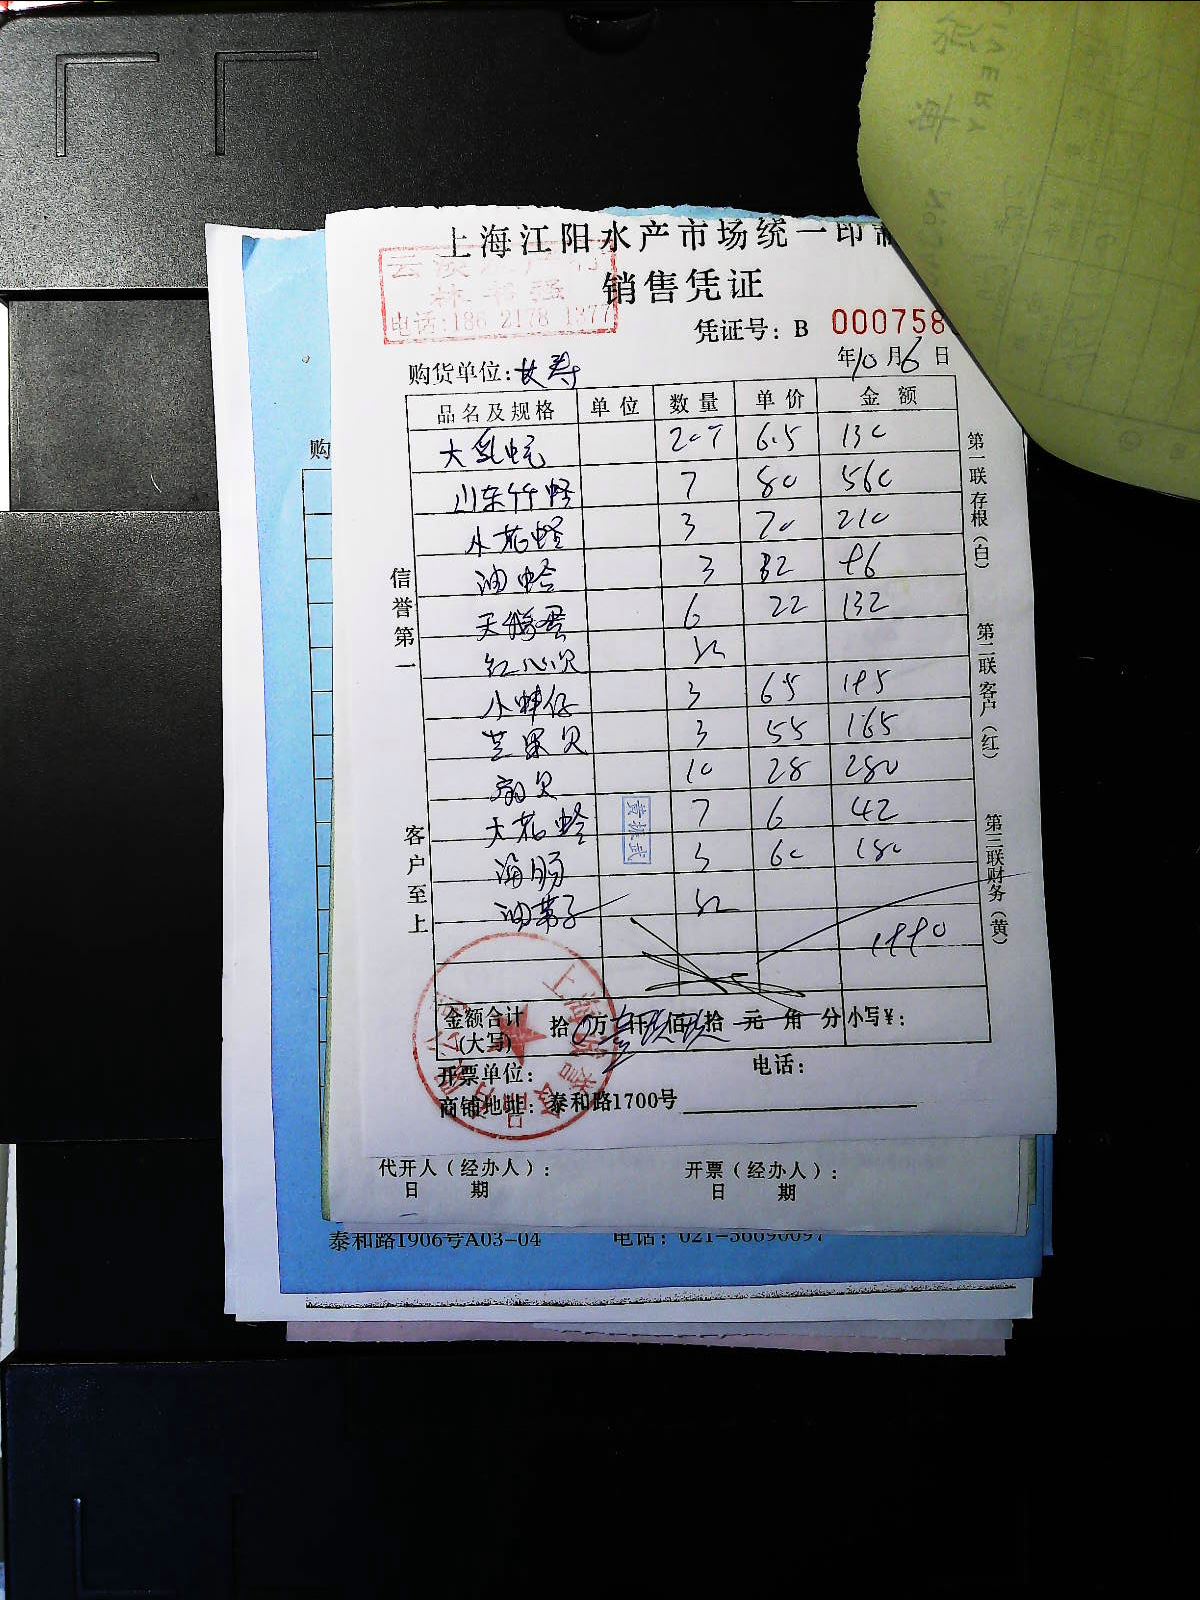 上海江阳水产市场统一印制
销售凭证
林书强
电话:186 2178 1377
凭证号: B 000758
年10月6日
购货单位:
品名及规格 单位 数量 单价 金额
大乳蚝 20T 6.5 130
山东竹蛏 7 80 560
小花蛏 3 70 210
油蛤 3 32 96
天鹅蛋 6 22 132
红心贝 3K
小蚌仔 3 65 195
芒果贝 3 55 165
扇贝 10 28 280
大花蛤 7 6 42
海肠 3 60 180
油荠子 3K
1990
黄振武
信誉第一
客户至上
第一联存根(白)
第二联客户(红)
第三联财务(黄)
金额合计(大写) 拾0万壹仟玖佰玖拾元角分 小写¥:
开票单位: 电话:
商铺地址: 泰和路1700号
代开人(经办人): 开票(经办人):
日 期 日 期
泰和路1906号A03-04
购